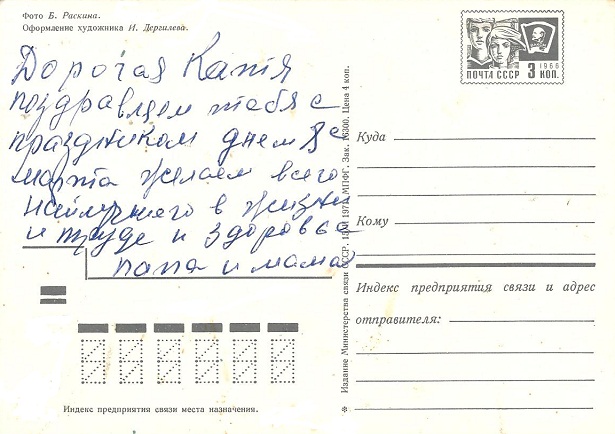 Фото Б. Раскина.
Оформление художника И. Дергилева.
Дорогая Катя
поздравляем тебя с
праздником днем 8е
марта желаем всего
найлучшего в жизни
и труде и здоровья
папа и мама
ПОЧТА СССР
1966
3 КОП.
Куда
Кому
Индекс предприятия связи и адрес
отправителя:
Индекс предприятия связи места назначения.
Издание Министерства связи СССР. МПФГ. Зак. 16300. Цена 4 коп.